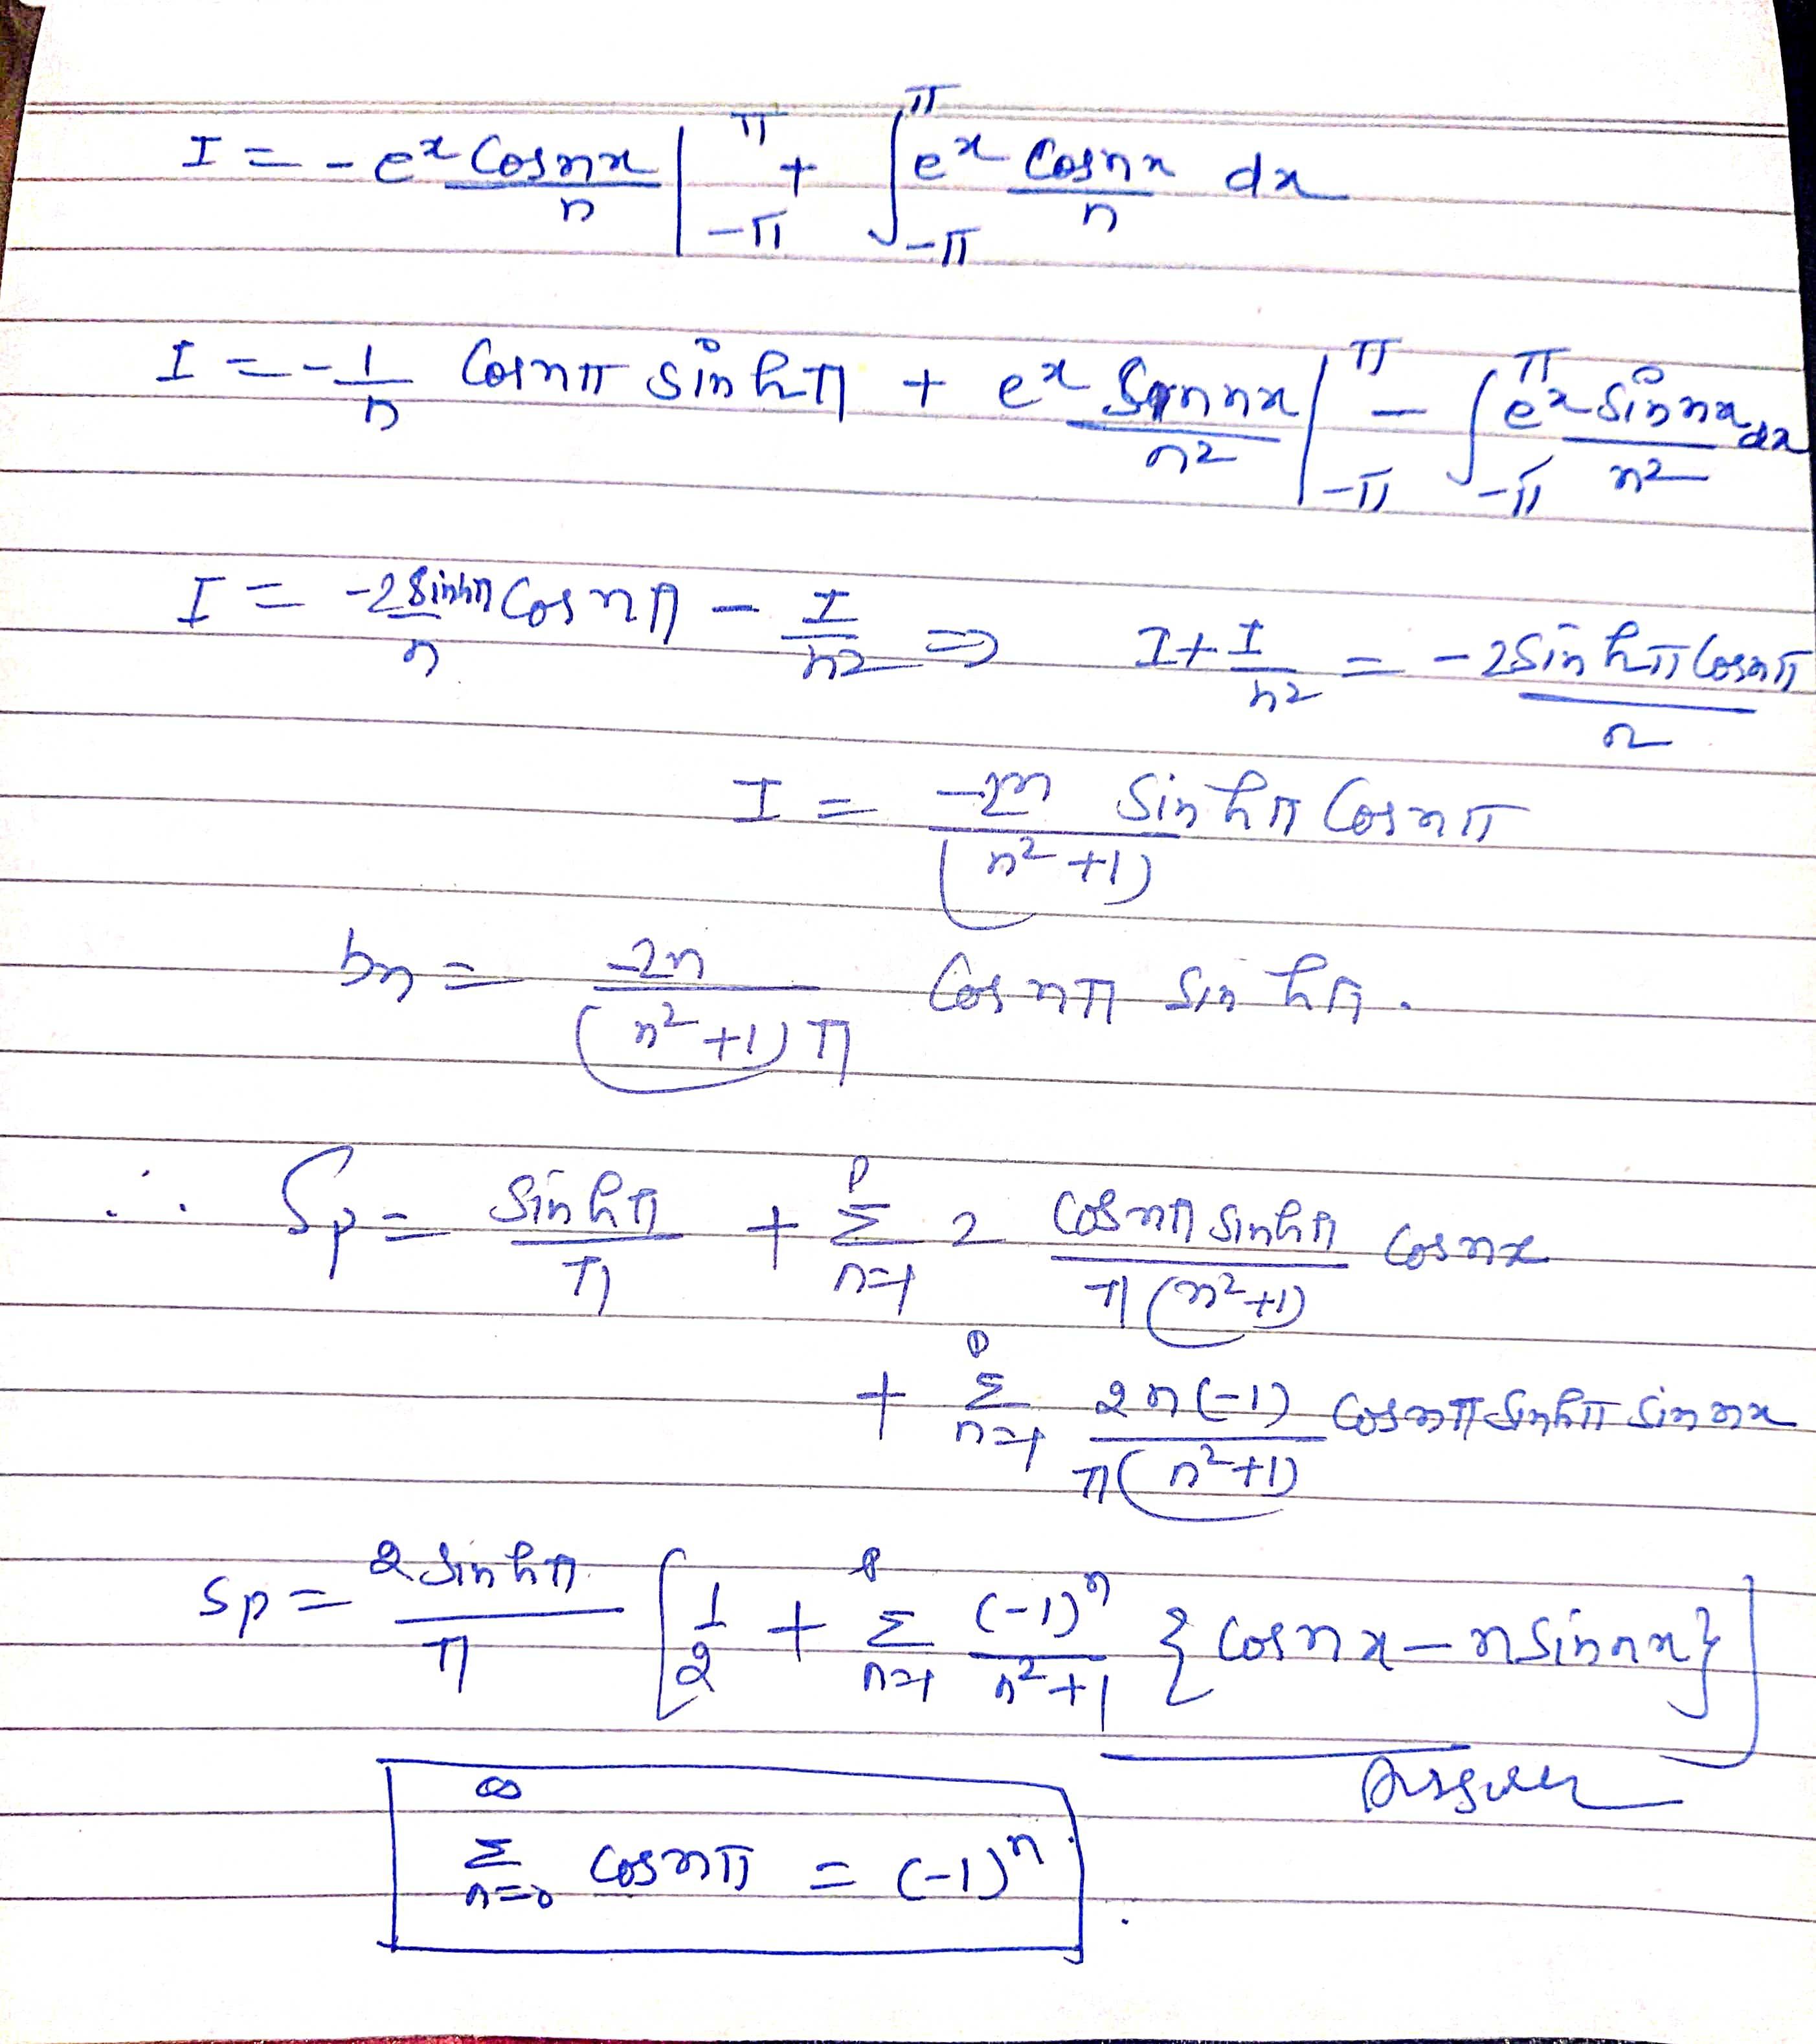 I = - e^x Cosnx/n |_{-π}^{π} + ∫_{-π}^{π} e^x Cosnx/n dx
I = - 1/n Cosnπ sinhπ + e^x Sinnx/n² |_{-π}^{π} - ∫_{-π}^{π} e^x Sinnx/n² dx
I = -2Sinhπ/n Cosnπ - I/n² ⇒ I + I/n² = - 2Sinhπ Cosnπ/n
I = -2n/(n²+1) Sinhπ Cosnπ
bn = -2n/((n²+1)π) Cosnπ Sinhπ.
∴ Sp = Sinhπ/π + Σ_{n=1}^{p} 2 Cosnπ Sinhπ/(π(n²+1)) Cosnx
+ Σ_{n=1}^{p} 2n(-1)/(π(n²+1)) Cosnπ Sinhπ Sinnx
Sp = 2Sinhπ/π [1/2 + Σ_{n=1}^{p} (-1)^n/(n²+1) {Cosnx - nSinnx}]
Answer
Σ_{n=0}^{∞} Cosnπ = (-1)^n